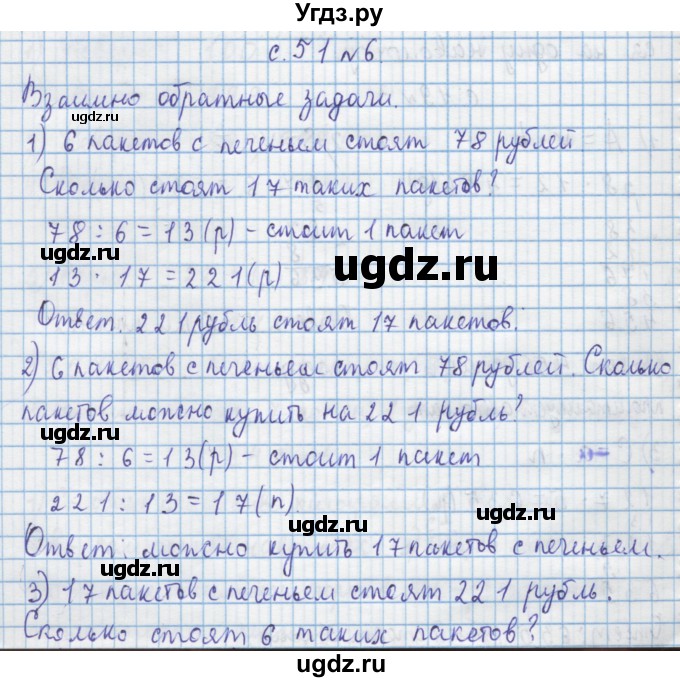 Угдз.ру
с. 51 №6.
Взаимно обратные задачи.
1) 6 пакетов с печеньем стоят 78 рублей
Сколько стоят 17 таких пакетов?
78 : 6 = 13 (р) - стоит 1 пакет
ugdz.ru
ugdz.ru
ugdz.ru
13 · 17 = 221 (р)
ugdz.ru
Ответ. 221 рубль стоят 17 пакетов.
2) 6 пакетов с печеньем стоят 78 рублей. Сколько
пакетов можно купить на 221 рубль?
ugdz.ru
ugdz.ru
78 : 6 = 13 (р) - стоит 1 пакет
221 : 13 = 17 (п).
Ответ: можно купить 17 пакетов с печеньем.
ugdz.ru
ugdz.ru
3) 17 пакетов с печеньем стоят 221 рубль.
Сколько стоят 6 таких пакетов?
ugdz.ru